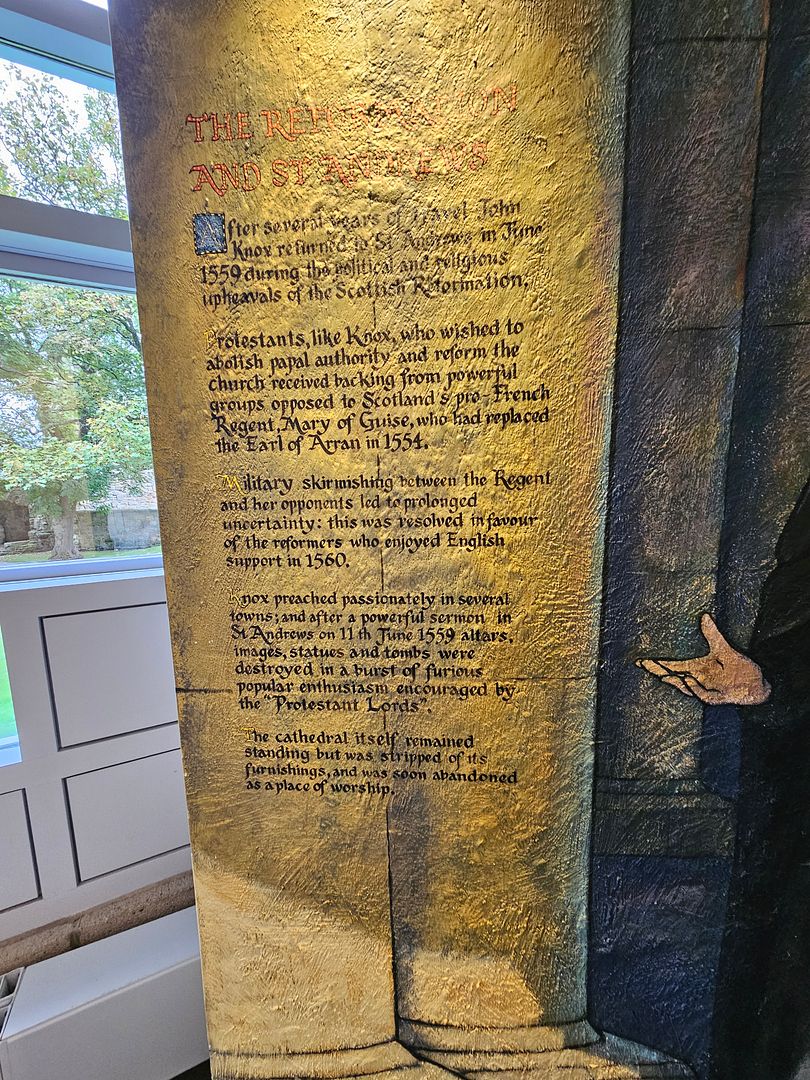 THE REFORMATION
AND ST ANDREWS
After several years of travel John
Knox returned to St Andrews in June
1559 during the political and religious
upheavals of the Scottish Reformation.
Protestants, like Knox, who wished to
abolish papal authority and reform the
church received backing from powerful
groups opposed to Scotland's pro-French
Regent, Mary of Guise, who had replaced
the Earl of Arran in 1554.
Military skirmishing between the Regent
and her opponents led to prolonged
uncertainty: this was resolved in favour
of the reformers who enjoyed English
support in 1560.
Knox preached passionately in several
towns; and after a powerful sermon in
St Andrews on 11th June 1559 altars,
images, statues and tombs were
destroyed in a burst of furious
popular enthusiasm encouraged by
the "Protestant Lords".
The cathedral itself remained
standing but was stripped of its
furnishings, and was soon abandoned
as a place of worship.